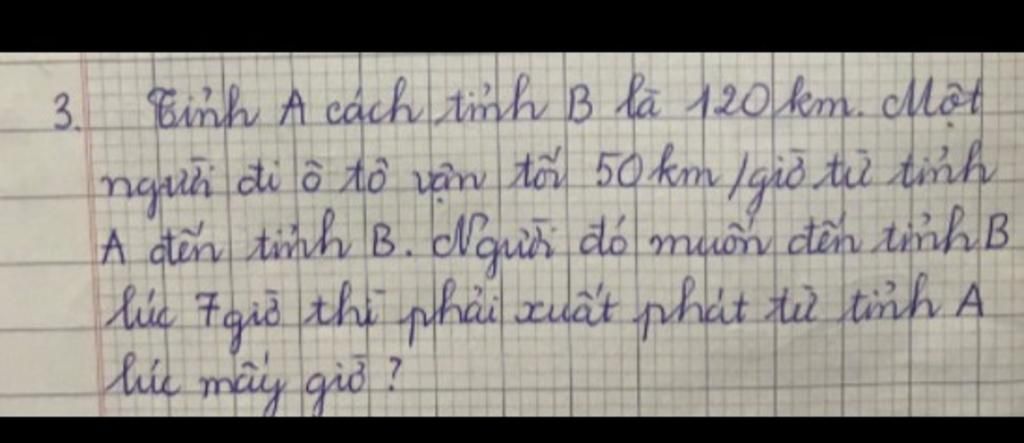 3. Tỉnh A cách tỉnh B là 120 km. Một
người đi ô tô vận tốc 50 km/giờ từ tỉnh
A đến tỉnh B. Người đó muốn đến tỉnh B
lúc 7 giờ thì phải xuất phát từ tỉnh A
lúc mấy giờ ?